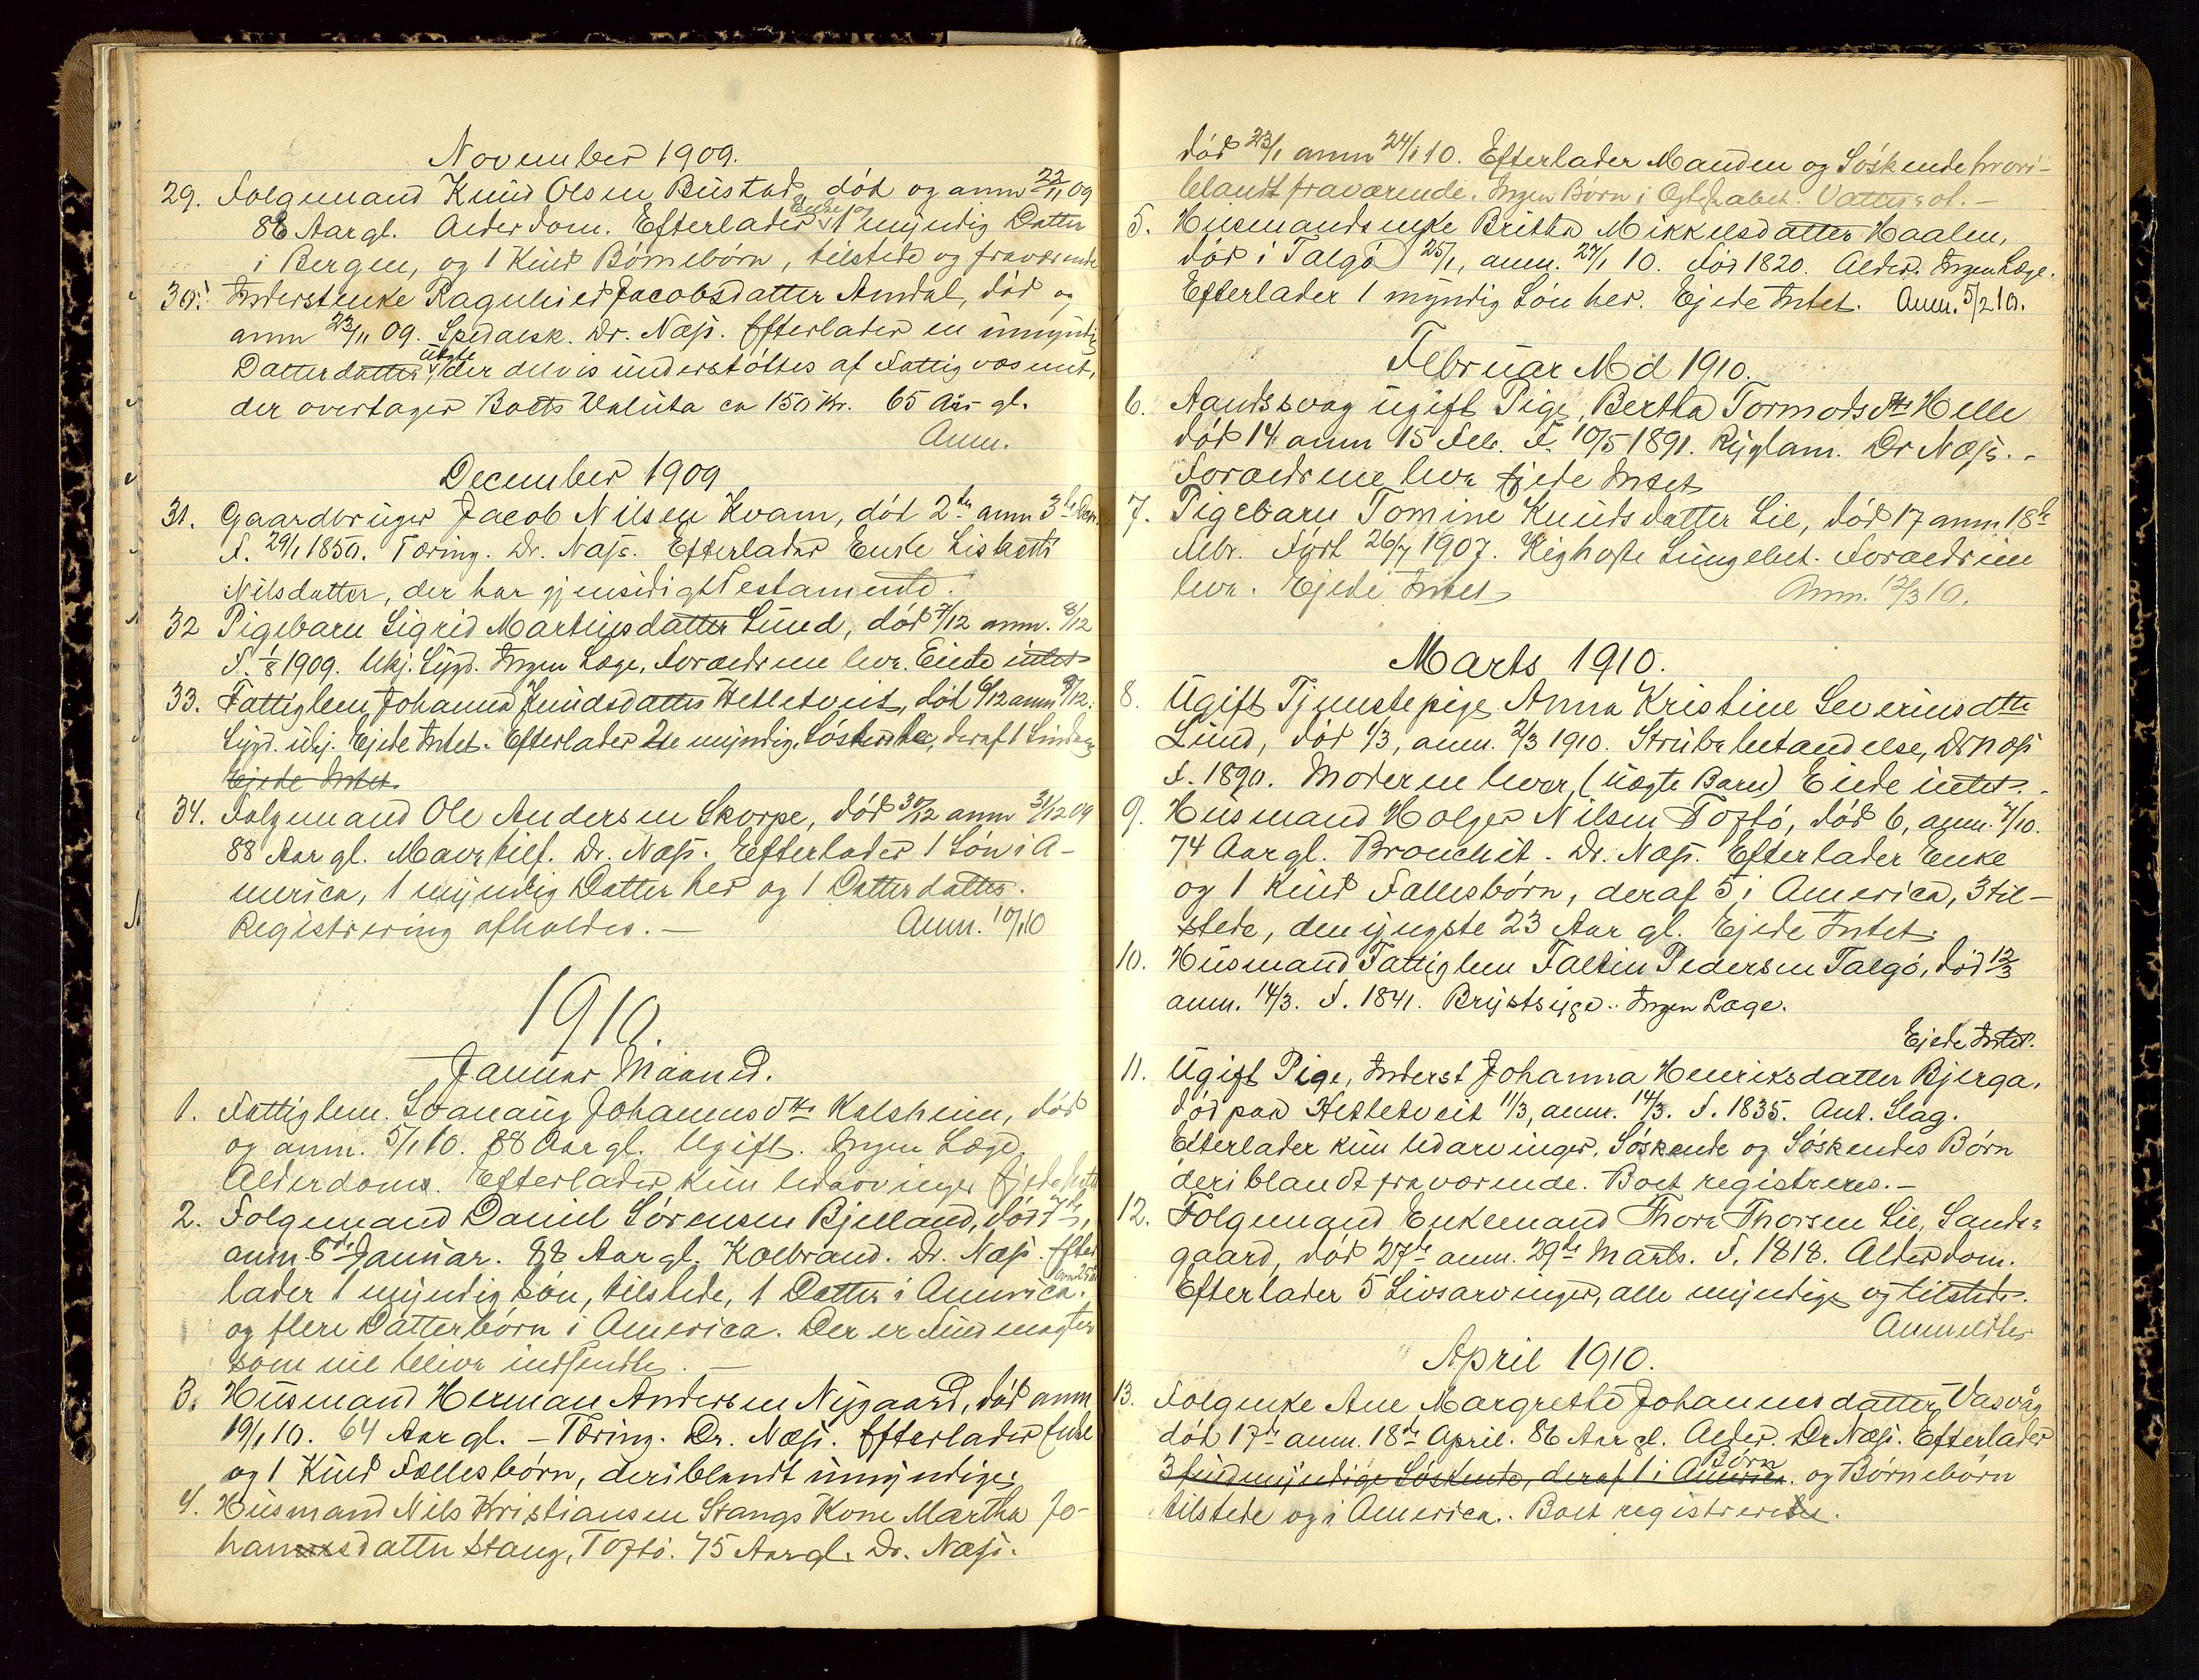 November 1909.
29. Folgemand Knud Olsen Bustad, död og anm 22/11 09
86 Aar gl. Alderdom. Efterlader Enke og 1 myndig Datter
i Bergen, og 1 Kuld Börnebörn, tilstede og fraværende
30. Inderstenke Ragnhild Jacobsdatter Amdal, död og
anm 23/11 09. Spedalsk. Dr. Næss. Efterlader en umyndig
Datterdatter, uægte, der delvis understöttes af Fattigvæsenet,
der overtager Boets Valuta ca 150 Kr. 65 Aar gl.
Anm.
December 1909
31. Gaardbruger Jacob Nilsen Kvam, död 2de anm 3de Dec.
F. 29/1 1850. Tæring. Dr. Næss. Efterlader Enke Lisbeth
Nilsdatter, der har gjensidigt Testamente.
32 Pigebarn Sigrid Martinsdatter Lund, död 7/12 anm. 8/12
F. 1/8 1909. Ukj. Sygd. Ingen Læge. Forældrene leve. Eiede intet
33. Fattiglem Johanna Knudsdatter Hetletveit, död 6/12 anm 9/12.
Sygd. ukj. Ejede Intet. Efterlader 2de myndige Söskende, deraf 1
Ejede Intet.
34. Folgemand Ole Andersen Skorpe, död 30/12 anm 31/12 09
88 Aar gl. Mavetilf. Dr. Næss. Efterlader 1 Sön i A-
merica, 1 myndig Datter her og 1 Datterdatter.
Registrering afholdes. — Anm. 10/1 10
1910.
Januar Maaned.
1. Fattiglem Svanaug Johannesdtr Kalsheim, död
og anm. 5/1 10. 88 Aar gl. Ugift. Ingen Læge.
Alderdoms. Efterlader kun Udarvinger Ejede Intet
2. Folgemand Daniel Sörensen Bjelland, död 7de,
anm 8de Januar. 88 Aar gl. Kolbrand. Dr. Næss. Efter
lader 1 myndig Sön, tilstede, 1 Datter i America.
og flere Datterbörn i America. Der er
som vil blive indsendte. —
3. Husmand Herman Andersen Nygaard, död anm
19/1 10. 64 Aar gl. — Tæring. Dr. Næss. Efterlader Enke
og 1 Kuld Fællesbörn, deriblandt umyndige.
4. Husmand Nils Kristiansen Stangs Kone Martha Jo-
hannesdatter Stang, Toftö. 75 Aar gl. Dr. Næss.
död 23/1 anm 24/1 10. Efterlader Manden og Söskende hvori-
blandt fraværende. Ingen Börn i Egteskabet.
5. Husmandsenke Britha Mikkelsdatter Haalen,
död i Talgö 25/1, anm. 27/1 10. Föd 1820. Alder. Ingen Læge.
Efterlader 1 myndig Sön her. Ejede Intet. Anm. 5/2 10.
Februar Md 1910.
6. Aandssvag ugift Pige, Bertha Tormodsdtr Helle
död 14 anm 15 Feb. F. 10/5 1891. Ryglam. Dr Næss. -
Forældrene leve Ejede Intet
7. Pigebarn Tomine Knudsdatter Lie, död 17 anm 18de
Febr. Födt 26/7 1907. Kighoste Lungebet. Forældrene
leve. Ejede Intet Anm. 12/3 10.
Marts 1910.
8. Ugift Tjenestepige Anna Kristine Severinsdtr
Lund, död 1/3, anm. 2/3 1910. Strubebetændelse, Dr Næss
F. 1890. Moderen lever, (uægte Barn) Eiede intet.
9. Husmand Holger Nilsen Toftö, död 6, anm. 7/10.
74 Aar gl. Bronchit. Dr. Næss. Efterlader Enke
og 1 Kuld Fællesbörn, deraf 5 i America, 3 til-
stede, den yngste 23 Aar gl. Ejede Intet.
10. Husmand Fattiglem Faltin Pedersen Talgö, död 12/3
anm. 14/3. F. 1841. Brystsyge. Ingen Læge.
Ejede Intet.
11. Ugift Pige, Inderst Johanna Henriksdatter Bjerga,
död paa Hetletveit 11/3, anm. 14/3. F. 1835. Ant. Slag.
Efterlader kun Udarvinger, Söskende og Söskendes Börn
deriblandt fraværende. Boet registreres. —
12. Folgemand Enkemand Thore Thorsen Lie, Sands-
gaard, död 27de anm. 29de Marts. F. 1818. Alderdom.
Efterlader 5 Livsarvinger, alle myndige og tilstede.
Anmeldte
April 1910.
13. Folgenke Ane Margrethe Johannesdatter, Vasvåg
död 17de anm. 18de April. 86 Aar gl. Alder. Dr Næss. Efterlader
3 myndige Söskende, deraf 1 i America. Börn og Börnebörn
tilstede og i America. Boet registreredes.